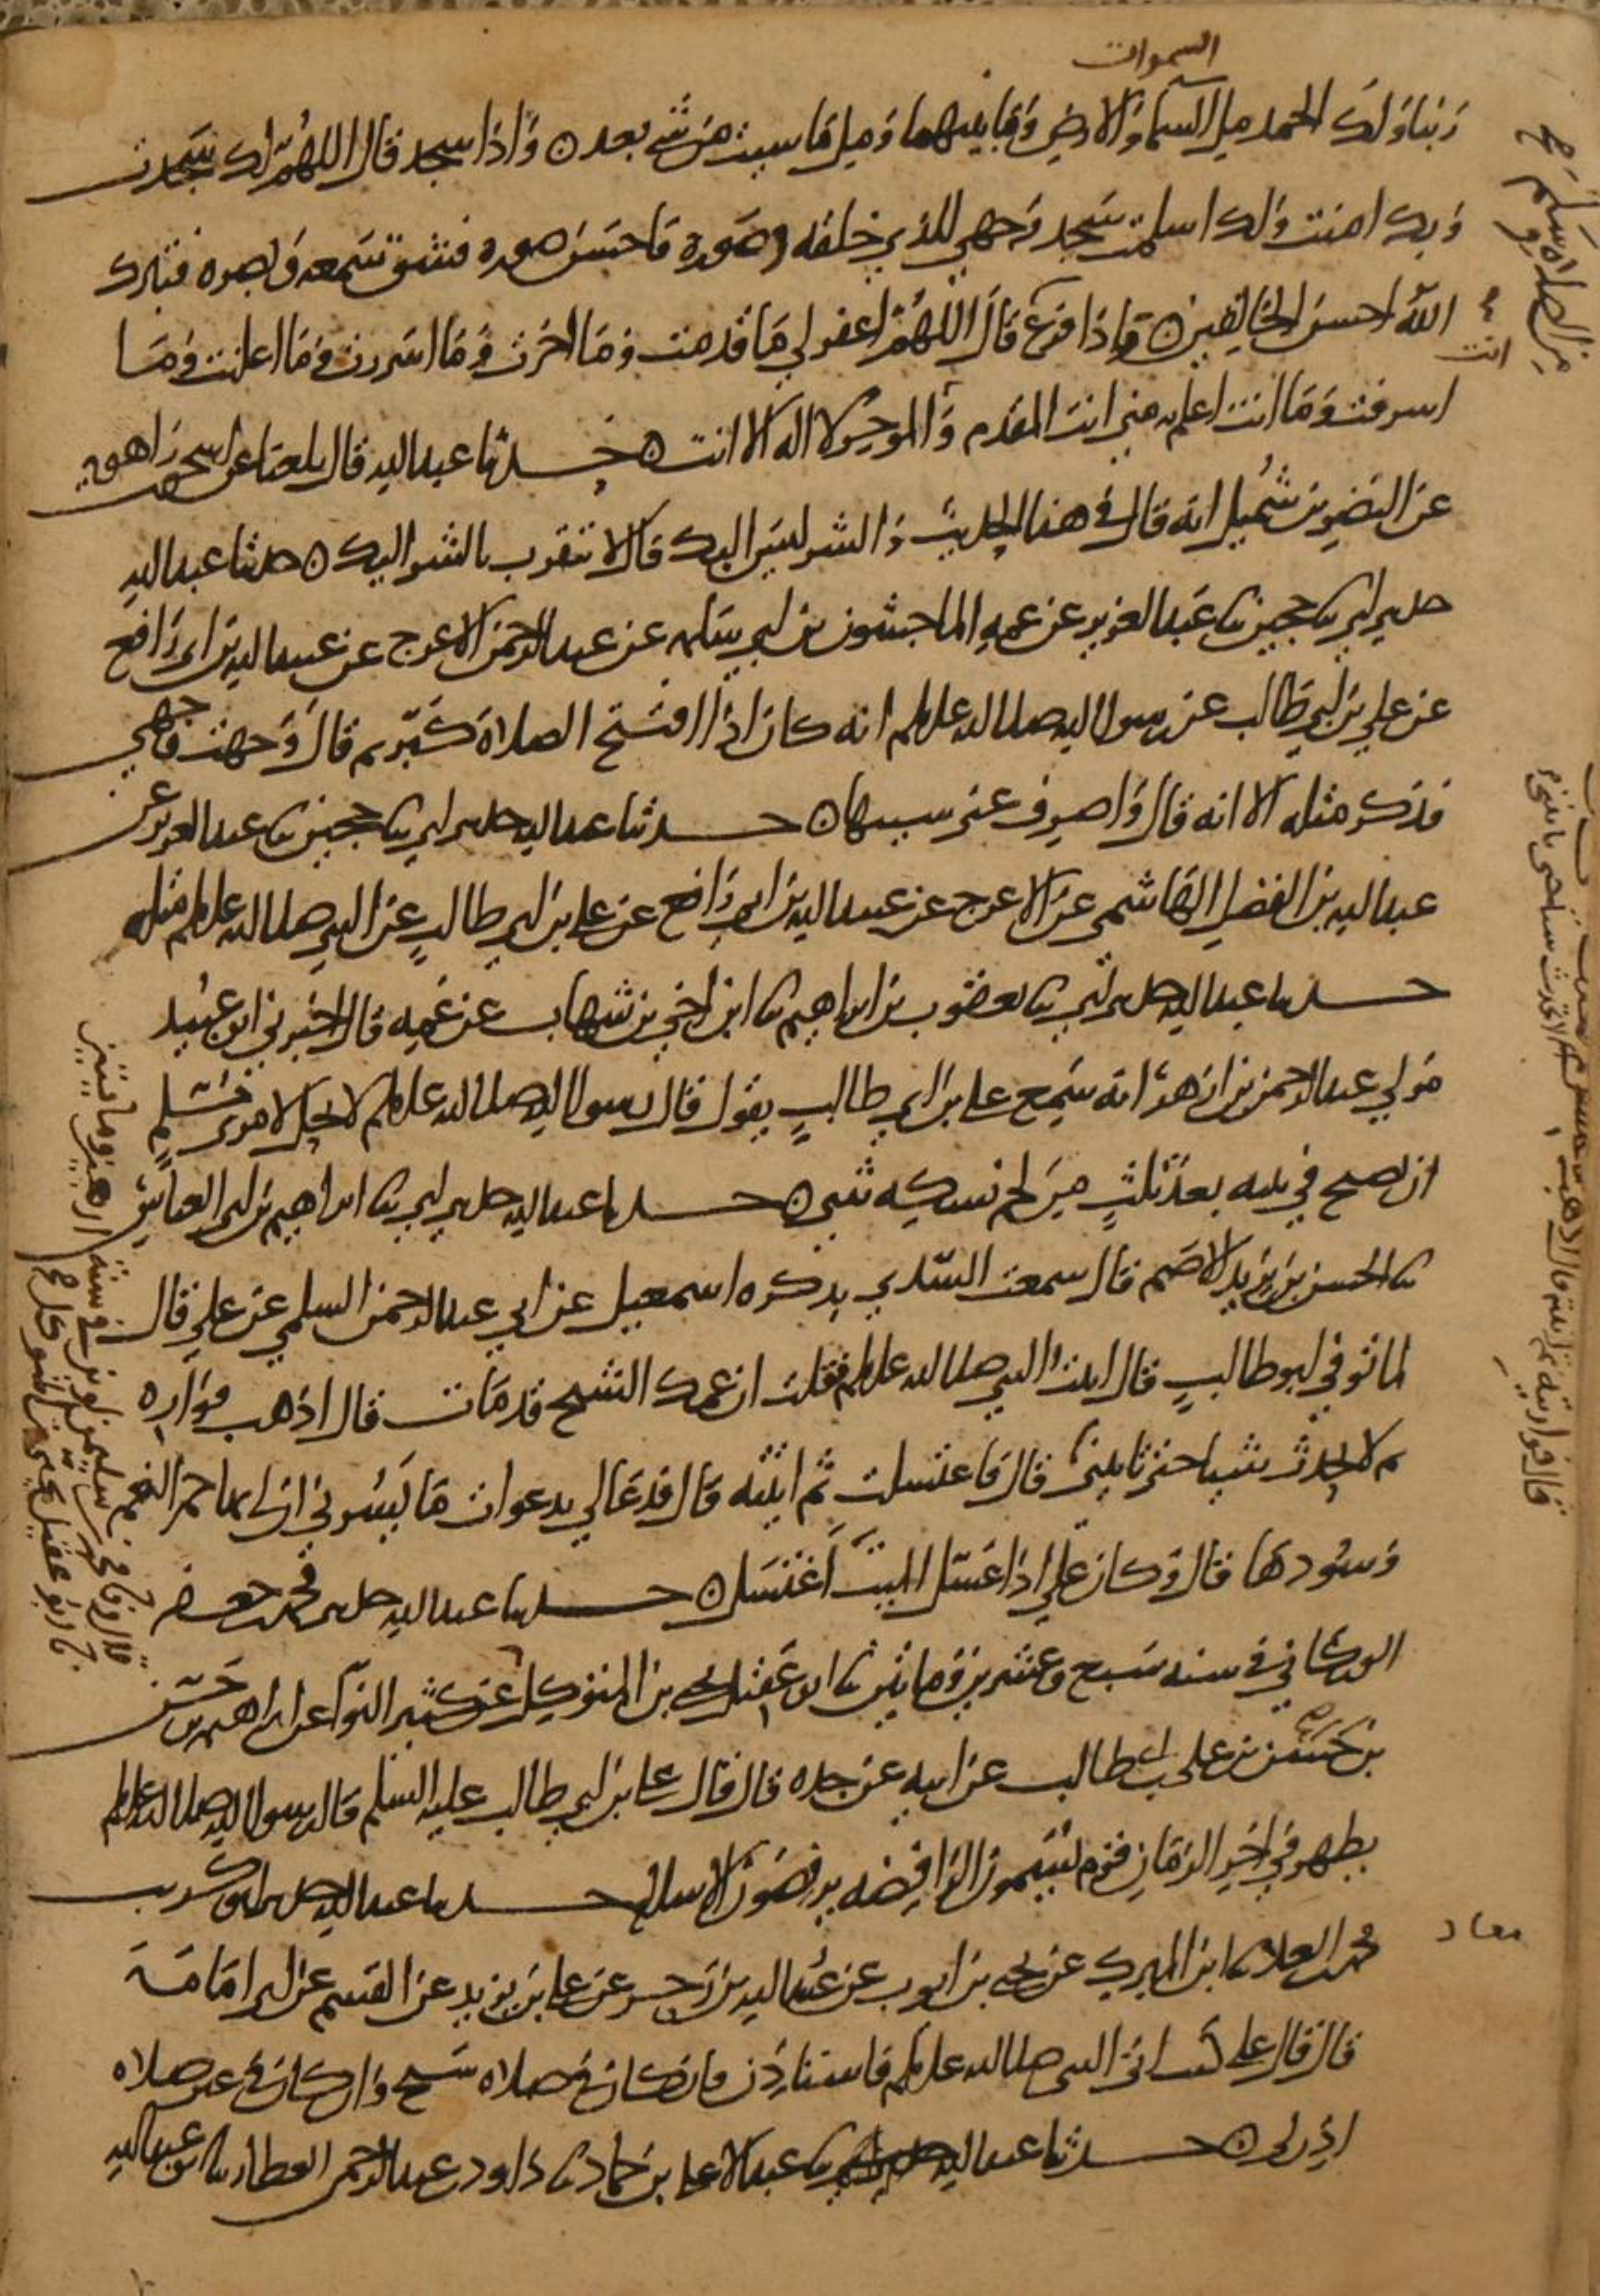 السموات
ربنا ولك الحمد ملء السماء والارض وما بينهما وملء ما شيت من شي بعد ه واذا سجد قال اللهم لك سجدت
وبك امنت ولك اسلمت سجد وجهي للذي خلقه وصوره فاحسن صوره فشق سمعه وبصره فتبارك
الله احسن الخالقين ه فاذا فرغ قال اللهم اغفر لي ما قدمت وما اخرت وما اسررت وما اعلنت وما
اسرفت وما انت اعلم به مني انت المقدم والموخر لا اله الا انت ه حدثنا عبد الله قال بلغنا عن اسحق بن راهويه
عن النضر بن شميل انه قال في هذا الحديث والشر ليس اليك قال لا يتقرب بالشر اليك ه حدثنا عبد الله
حدثني ابي ثنا حجين ثنا عبد العزيز عن عمه الماجشون بن ابي سلمه عن عبد الرحمن الاعرج عن عبيد الله بن ابي رافع
عن علي بن ابي طالب عن رسول الله صلى الله عليه وسلم انه كان اذا افتتح الصلاة كبر ثم قال وجهت وجهي
فذكر مثله الا انه قال واصرف عني سييها ه حدثنا عبد الله حدثني ابي ثنا حجين ثنا عبد العزيز عن
عبد الله بن الفضل الهاشمي عن الاعرج عن عبيد الله بن ابي رافع عن علي بن ابي طالب عن النبي صلى الله عليه وسلم مثله
حدثنا عبد الله حدثني ابي ثنا يعقوب بن ابراهيم ثنا ابن اخي بن شهاب عن عمه قال اخبرني ابو عبيد
مولي عبد الرحمن بن ازهر انه سمع علي بن ابي طالب يقول قال رسول الله صلى الله عليه وسلم لا يحل لامري مسلم
ان يصبح في بيته بعد ثلث من لحم نسكه شي ه حدثنا عبد الله حدثني ابي ثنا ابراهيم بن ابي العباس
ثنا الحسن بن يزيد الاصم قال سمعت السدي يذكره اسمعيل عن ابي عبد الرحمن السلمي عن علي قال
لما توفي ابو طالب قال اتيت النبي صلى الله عليه وسلم فقلت ان عمك الشيخ قد مات قال اذهب فواره
ثم لا تحدث شيا حتى تاتيني قال فاغتسلت ثم اتيته قال فدعا لي بدعوات ما يسرني ان لي بها حمر النعم
وسودها قال وكان علي اذا غسل الميت اغتسل ه حدثنا عبد الله حدثني محمد بن جعفر
الوركاني في سنه سبع وعشرين ومايتين ثنا ابو عقيل يحيى بن المتوكل عن كثير النوا عن ابراهيم بن حسن
بن حسن بن علي بن ابي طالب عن ابيه عن جده قال قال علي بن ابي طالب عليه السلم قال رسول الله صلى الله عليه وسلم
يظهر في اخر الزمان قوم يسمون الرافضه يرفضون الاسلام حدثنا عبد الله حدثني ابو كريب
محمد بن العلاء ثنا ابن المبرك عن يحيى بن ايوب عن عبيد الله بن زحر عن علي بن يزيد عن القسم عن ابي امامة
قال قال علي كنت اتي النبي صلى الله عليه وسلم فاستاذن فان كان في صلاه سبح وان كان في غير صلاه
اذن لي ه حدثنا عبد الله ثنا عبد الاعلى بن حماد ثنا داود بن عبد الرحمن العطار ثنا ابو عبد الله
من الصلاه وسلم
انت
معاد